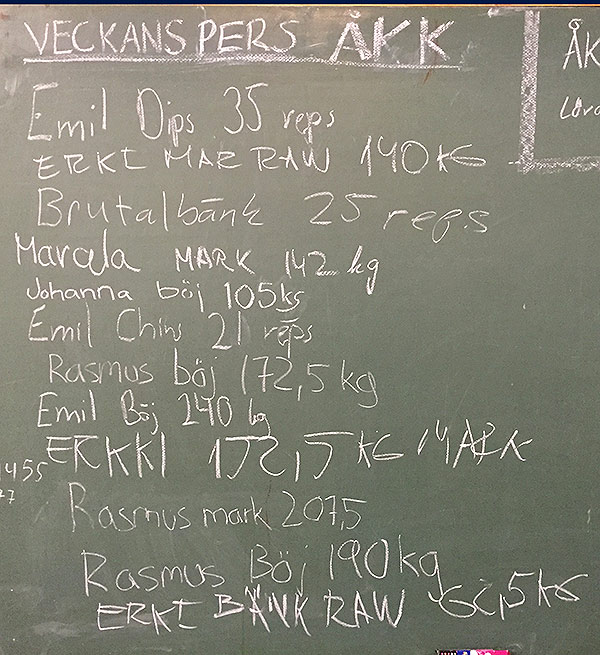 VECKANS PERS ÅKK
Emil Dips 35 reps
ERKI MAR RAW 140 KG
Brutalbänk 25 reps
Marcela MARK 142 kg
Johanna böj 105kg
Emil Chins 21 reps
Rasmus böj 172,5 kg
Emil Böj 240 kg
ERKKI 152,5 KG MARK
Rasmus mark 207,5
Rasmus Böj 190kg
ERKI BÄNK RAW 62,5 KG
ÅK
Lörd
1455